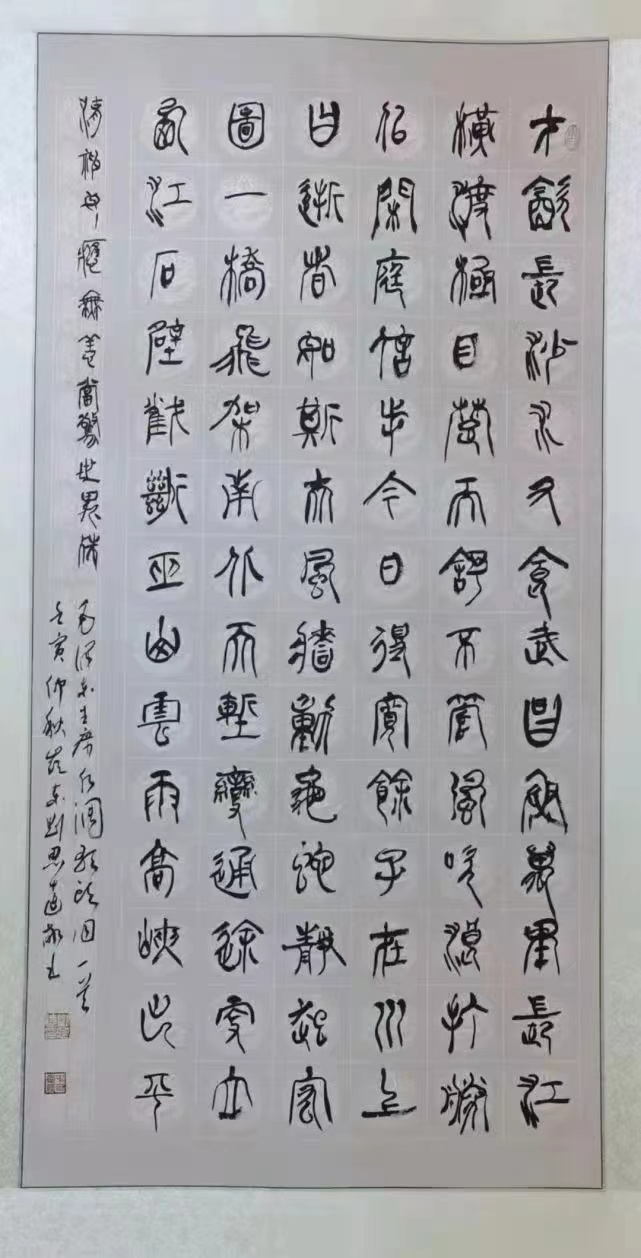 才飲長沙水又食武昌魚萬里長江
橫渡極目楚天舒不管風吹浪打勝
似閑庭信步今日得寬餘子在川上
曰逝者如斯夫風檣動龜蛇靜起宏
圖一橋飛架南北天塹變通途更立
西江石壁截斷巫山雲雨高峽出平
湖神女應無恙當驚世界殊
毛澤東主席水調歌頭一首
壬寅仲秋劉思道敬书